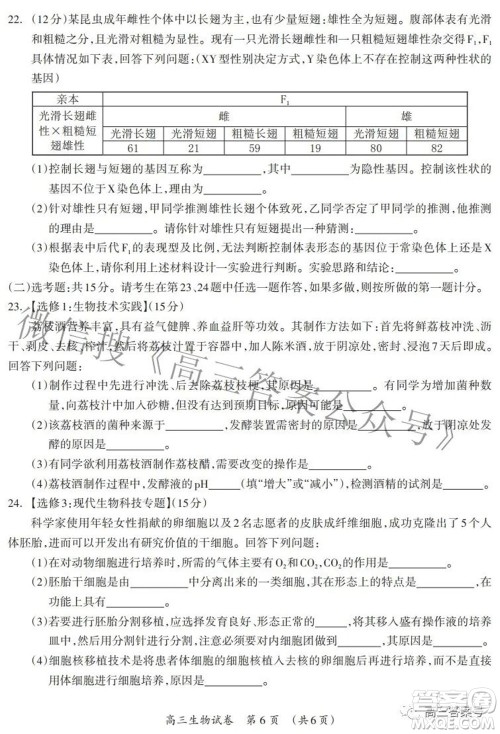 22. (12分)某昆虫成年雌性个体中以长翅为主,也有少量短翅;雄性全为短翅。腹部体表有光滑
和粗糙之分,且光滑对粗糙为显性。现有一只光滑长翅雌性和一只粗糙短翅雄性杂交得F₁,F₁
具体情况如下表,回答下列问题:(XY型性别决定方式,Y染色体上不存在控制这两种性状的
基因)
亲本 F₁
光滑长翅雌性×粗糙短翅雄性 雌 雄
光滑长翅 光滑短翅 粗糙长翅 粗糙短翅 光滑短翅 粗糙短翅
61 21 59 19 80 82
(1)控制长翅与短翅的基因互称为,其中为隐性基因。控制该性状的
基因不位于X染色体上,理由为。
(2)针对雄性只有短翅,甲同学推测雄性长翅个体致死,乙同学否定了甲同学的推测,他推测
的理由是。请你针对雄性只有短翅提出一种猜测:。
(3)根据表中后代F₁的表现型及比例,无法判断控制体表形态的基因位于常染色体上还是X
染色体上,请你利用上述材料设计一实验判断。实验思路和结论:。
(二)选考题:共15分。请考生在第23、24题中任选一题作答,如果多做,则按所做的第一题计分。
23. 【选修1:生物技术实践】(15分)
荔枝酒营养丰富,具有益气健脾、养血益肝等功效。其制作方法如下:首先将鲜荔枝冲洗、沥
干、剥皮、去核,然后将荔枝汁液置于容器中,加入陈米酒,放于阴凉处,密封、浸泡7天后即成。
回答下列问题:
(1)制作过程中先进行冲洗、后去除荔枝枝梗,其原因是。有同学为了增加菌种数
量,向荔枝汁中加入砂糖,但没有达到预期目标,其原因可能是。
(2)该荔枝酒的菌种来源于,发酵后需密封的原因是,放于阴凉处发
酵的原因是。
(3)有同学欲利用荔枝酒制作荔枝醋,需要改变的条件是。
(4)荔枝酒制作过程中,发酵液的pH(填“增大”或“减小”),检测酒精的试剂是。
24. 【选修3:现代生物科技专题】(15分)
科学家使用年轻女性捐献的卵细胞以及2名志愿者的皮肤成纤维细胞,成功克隆出了5个人
体胚胎,进而可以开发出有研究价值的干细胞。回答下列问题:
(1)在对动物细胞进行培养时,所需的气体主要有O₂和CO₂,CO₂的作用是。
(2)胚胎干细胞是由中分离出来的一类细胞,其在形态上的特点是,在
功能上具有。
(3)若要进行胚胎分割移植,应选择发育良好、形态正常的,将其移入盛有操作液的培养
皿中,然后用分割针进行分割,注意分割必须要对内细胞团均等分割,原因是。
(4)细胞核移植技术是将患者体细胞的细胞核植入去核的卵细胞后再进行培养,而不是直接
用体细胞进行培养,原因是。
高三生物试卷 第6页 (共6页)
微信搜《高三答案公众号》
高三答案号